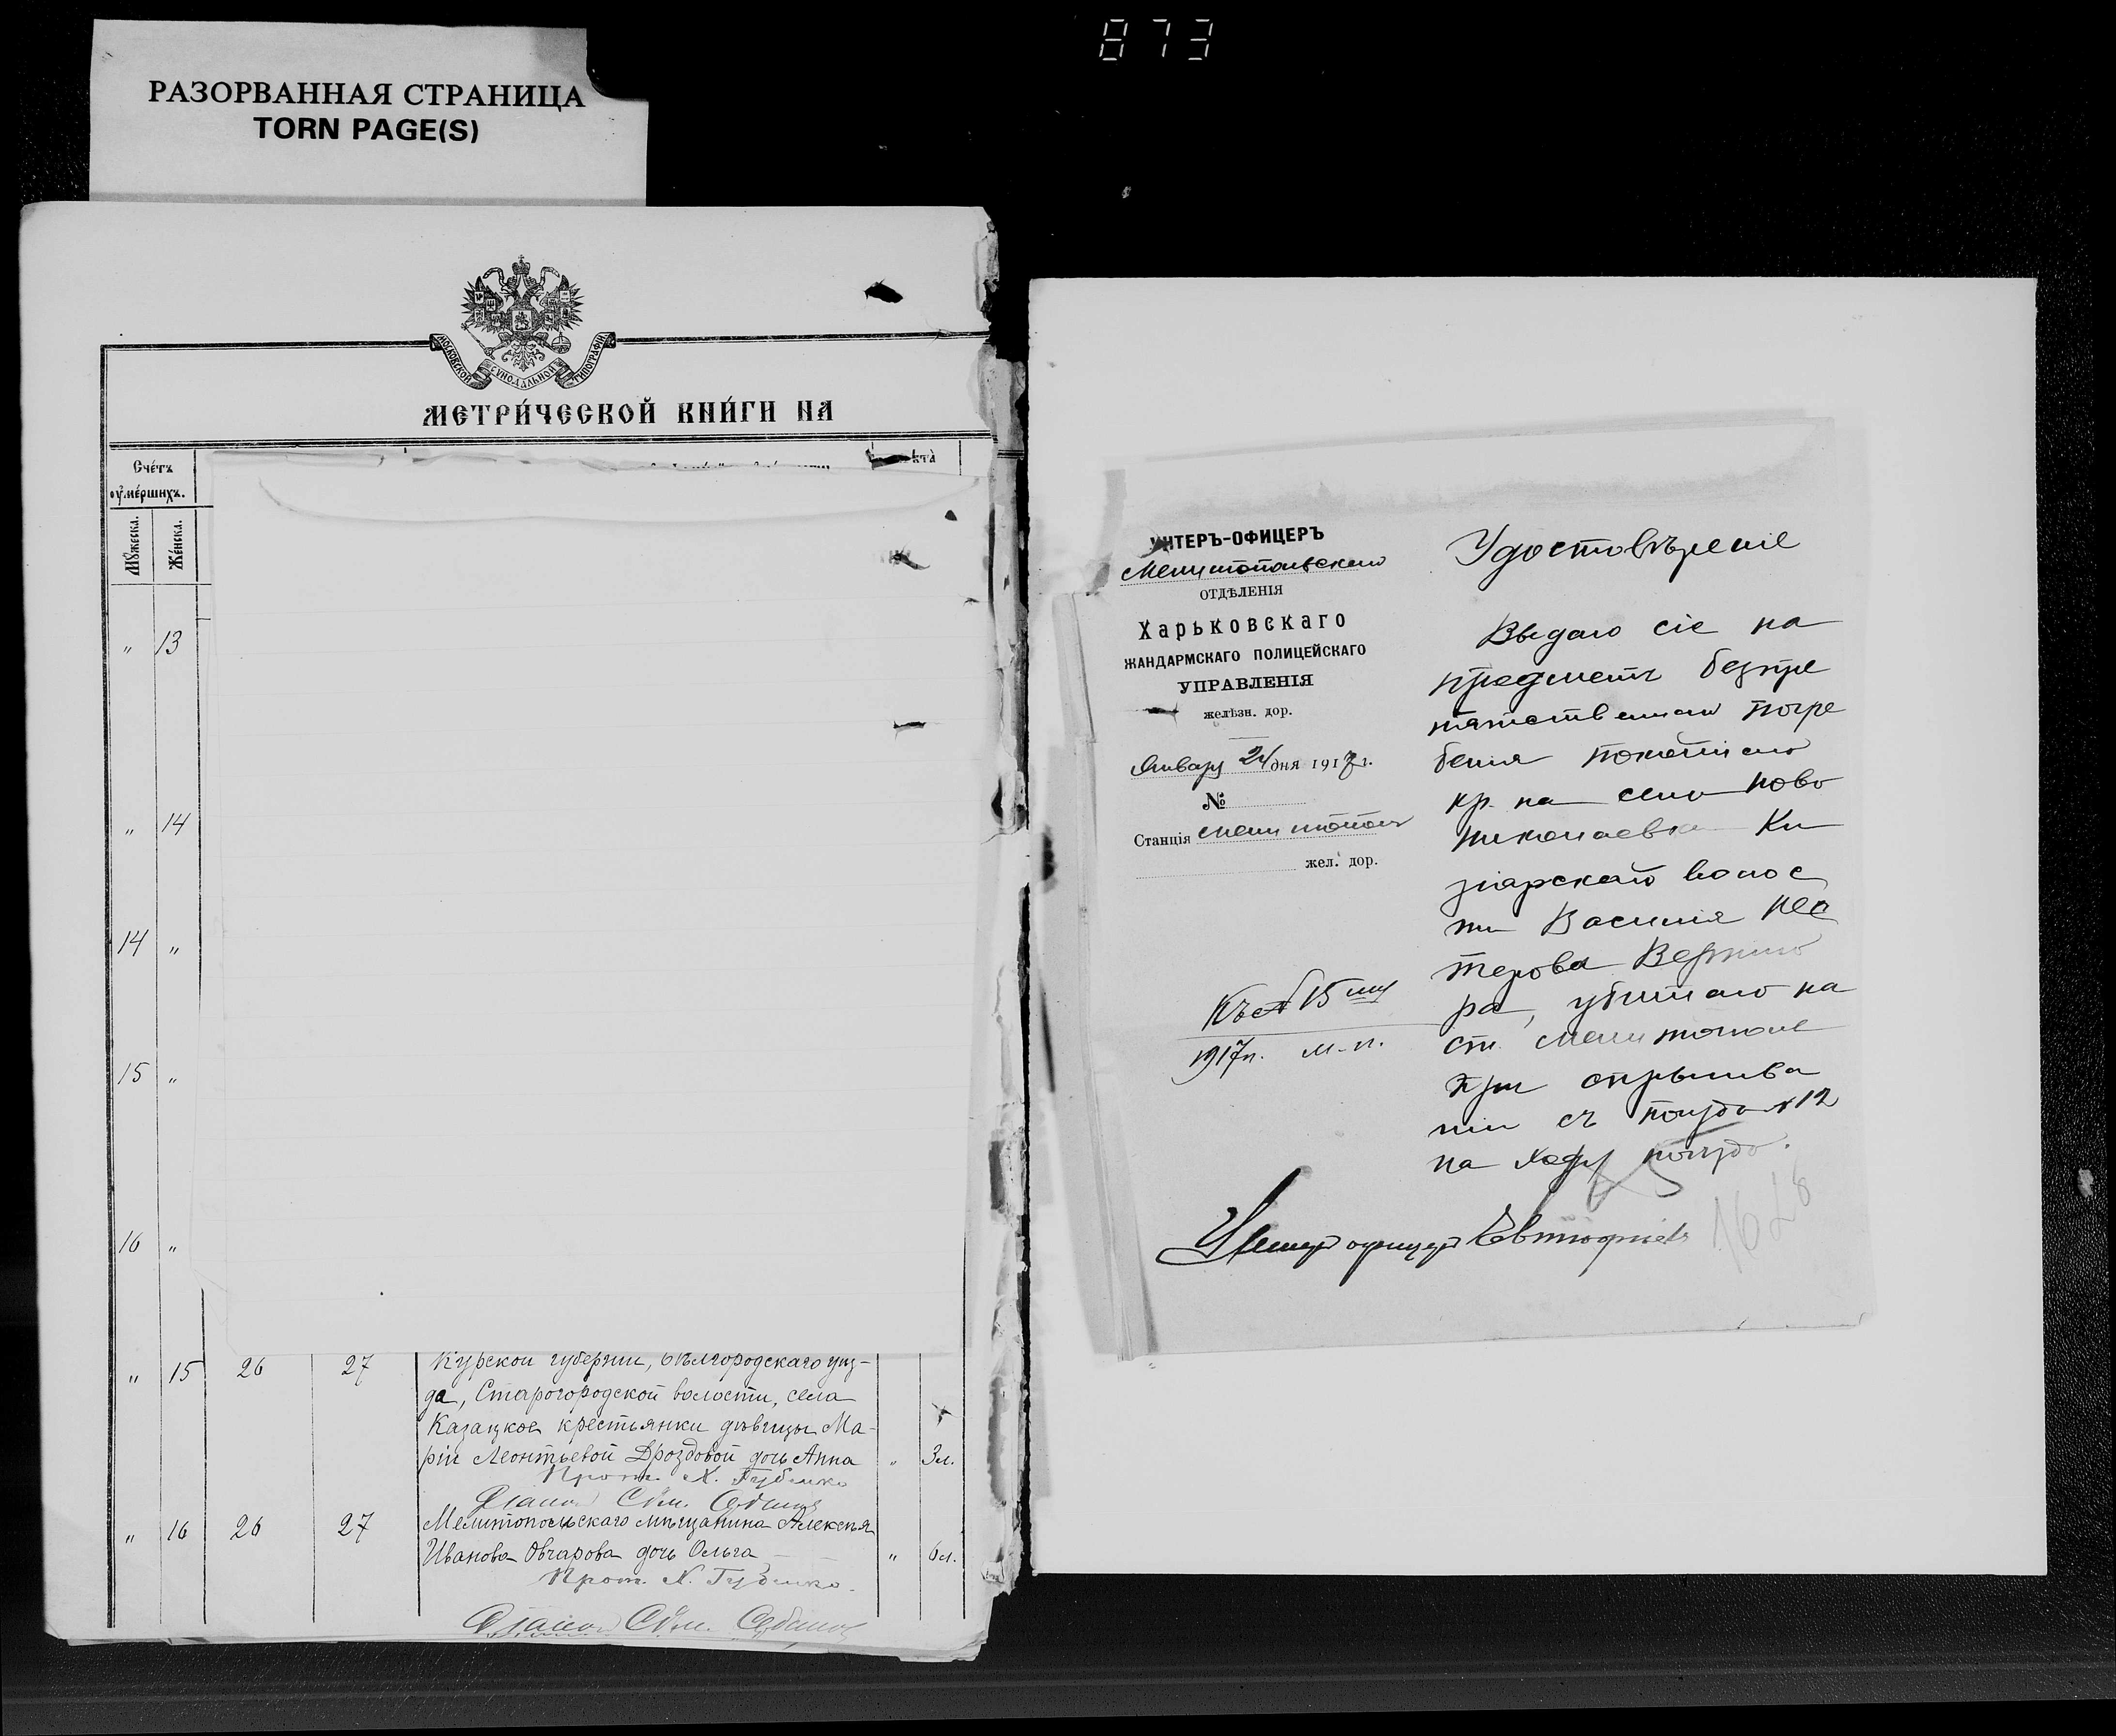 873
РАЗОРВАННАЯ СТРАНИЦА
TORN PAGE(S)
МОСКОВСКОЙ СУНОДАЛЬНОЙ ТИПОГРАФІИ
МЕТРИ́ЧЕСКОЙ КНИ́ГИ НА
Счéтъ
оу҆мéршихъ.
Мꙋ́жеска.
Жéнска.
" 13
" 14
14 "
15 "
16 "
" 15 26 27 Курской губерніи, Бѣлгородскаго уѣз-
да, Старогородской волости, села
Казацкое крестьянки дѣвицы Ма-
ріи Леонтьевой Дроздовой дочь Анна " 3м.
Прот. Х. Губенко
Діакон Сѵм.
" 16 26 27 Мелитопольскаго мѣщанина Алексѣя
Иванова Овчарова дочь Ольга " 6м.
Прот. Х. Губенко.
Діакон Сѵм.
УНТЕРЪ-ОФИЦЕРЪ
Мелитопольскаго
ОТДѢЛЕНІЯ
Харьковскаго
ЖАНДАРМСКАГО ПОЛИЦЕЙСКАГО
УПРАВЛЕНІЯ
желѣзн. дор.
Январу 24 дня 1917 г.
№
Станція Мелитополь
жел. дор.
Къ № 15
1917 г. м. п.
Удостовѣреніе
Выдаю сіе на
предметъ безпре
пятственнаго погре
бенія
кр. на село Ново
Николаевка Ки
зіарскаго волос
ти Василія Нес
терова
ра, убитаго на
ст. Мелитополе
при спрыива
ніи съ поезда № 12
на ходу поезда.
Унтер офицер Евтюфиевъ
1628